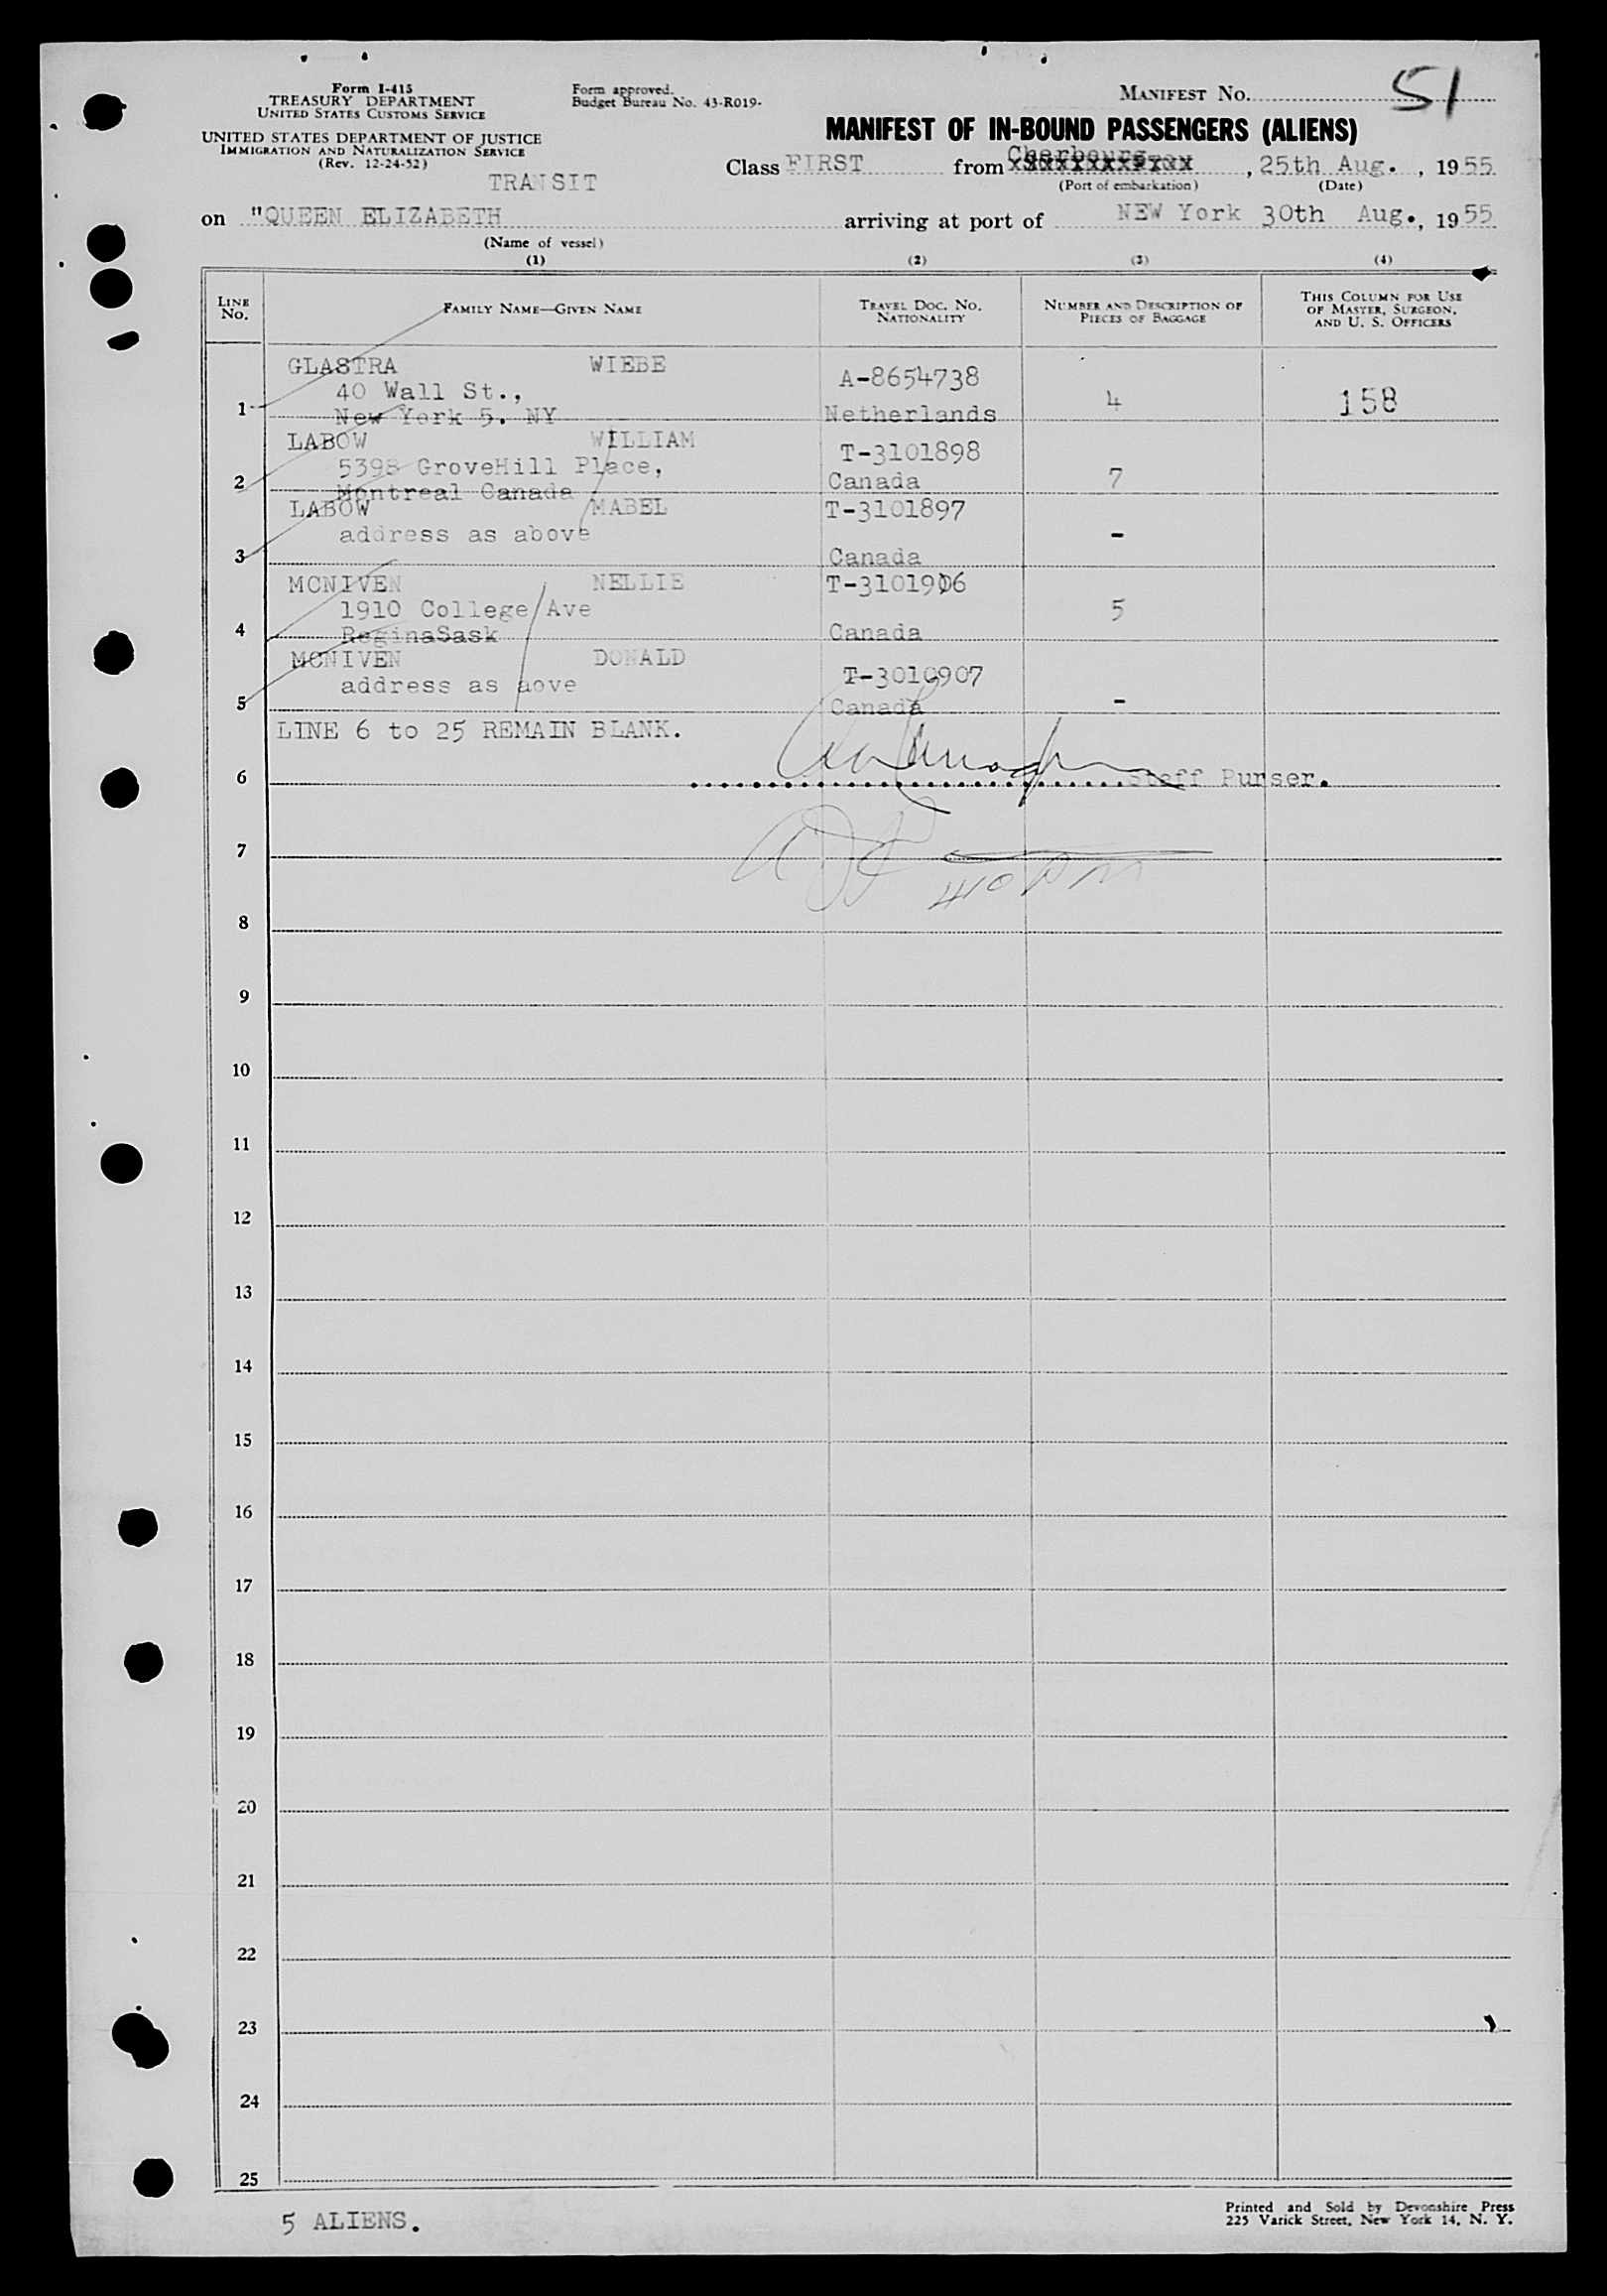 Form I-415
TREASURY DEPARTMENT
UNITED STATES CUSTOMS SERVICE
UNITED STATES DEPARTMENT OF JUSTICE
IMMIGRATION AND NATURALIZATION SERVICE
(Rev. 12-24-52)
Form approved.
Budget Bureau No. 43-R019-
MANIFEST NO. 51
MANIFEST OF IN-BOUND PASSENGERS (ALIENS)
Class FIRST from Cherbourg, 25th Aug. , 1955
(Port of embarkation) (Date)
TRANSIT
on "QUEEN ELIZABETH arriving at port of NEW York 30th Aug., 1955
(Name of vessel)
(1) (2) (3) (4)
LINE NO. FAMILY NAME—GIVEN NAME TRAVEL DOC. NO. NATIONALITY NUMBER AND DESCRIPTION OF PIECES OF BAGGAGE THIS COLUMN FOR USE OF MASTER, SURGEON, AND U. S. OFFICERS
GLASTRA WIEBE A-8654738
40 Wall St.,
1 New York 5. NY Netherlands 4 158
LABOW WILLIAM T-3101898
5398 GroveHill Place,
2 Montreal Canada Canada 7
LABOW MABEL T-3101897
address as above
3 Canada -
MCNIVEN NELLIE T-3101906
1910 College Ave
4 ReginaSask Canada 5
MCNIVEN DONALD T-3010907
address as aove
5 Canada -
LINE 6 to 25 REMAIN BLANK.
6 Staff Purser.
7
8
9
10
11
12
13
14
15
16
17
18
19
20
21
22
23
24
25
5 ALIENS.
Printed and Sold by Devonshire Press
225 Varick Street, New York 14, N. Y.